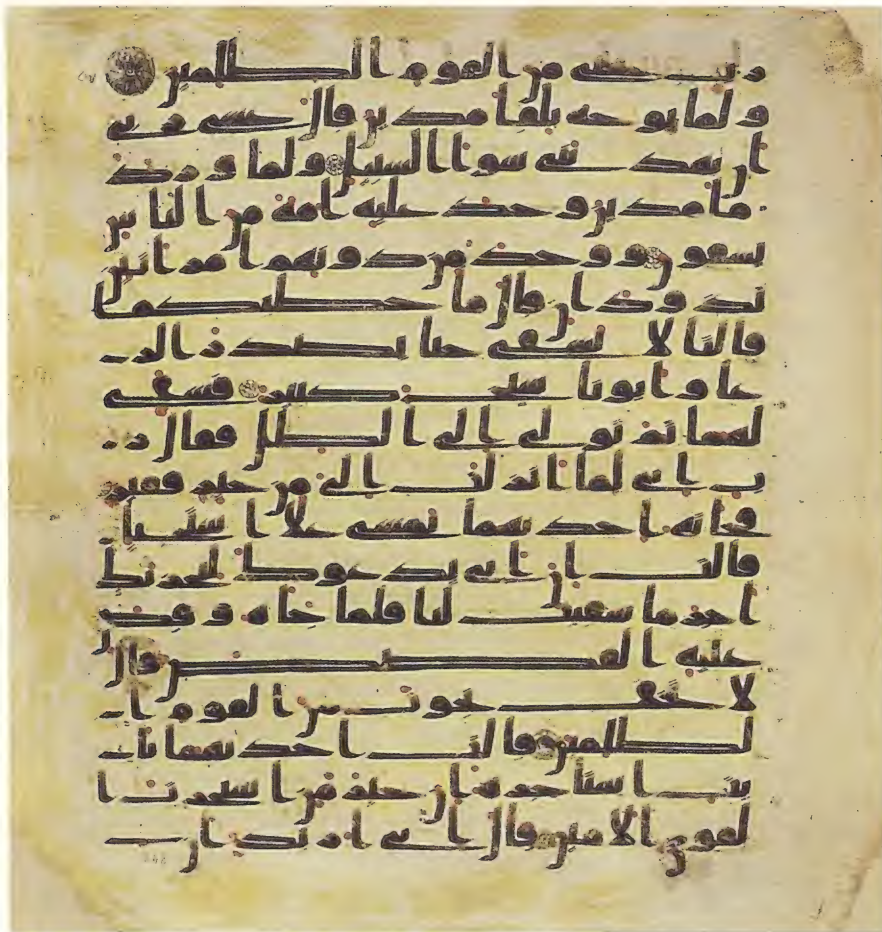 رب نجني من القوم الظلمين
ولما توجه تلقا مدين قال عسى ربي
ان يهديني سوا السبيل ولما ورد
ما مدين وجد عليه امة من الناس
يسقون ووجد من دونهم امراتين
تذودان قال ما خطبكما
قالتا لا نسقي حتا يصدر الر
عا وابونا شيخ كبير فسقى
لهما ثم تولى الى الظل فقال ر
ب اني لما انزلت الي من خير فقير
فجاته احديهما تمشي علا استحيا
قالت ان ابي يدعوك ليجزيك
اجر ما سقيت لنا فلما جاه وقص
عليه القصص قال
لا تخف نجوت من القوم ا
لظلمين قالت احديهما يا
بت استاجره ان خير من استاجرت ا
لقوي الامين قال اني اريد ان